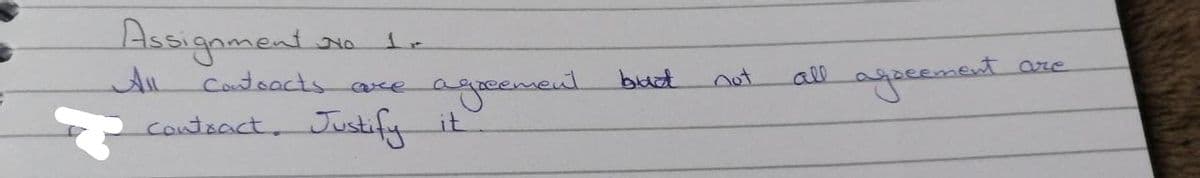 Assignment No 1.
All Contracts are agreement but not all agreement are
contract. Justify it.